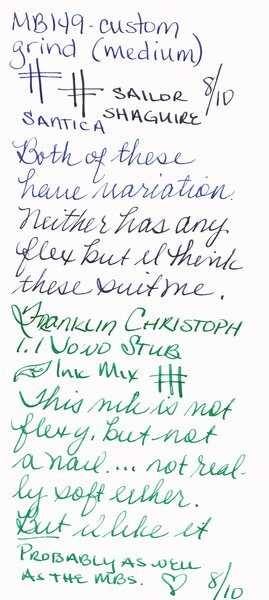 MB149-custom
grind (medium)
SAILOR 8/10
SANTICA SHAGUIRE
Both of these
have variation.
Neither has any
flex but I think
these suit me.
FRANKLIN CHRISTOPH
1.1 NOVO STUB
INK MIX
This nib is not
flexy, but not
a nail... not real-
ly soft either.
But I like it
PROBABLY AS WELL
AS THE MBS. 8/10